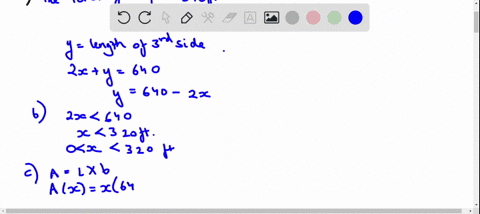 y = length of 3rd side
2x + y = 640
y = 640 - 2x
b) 2x < 640
x < 320 ft.
0 < x < 320 ft
c) A = L × b
A(x) = x(64